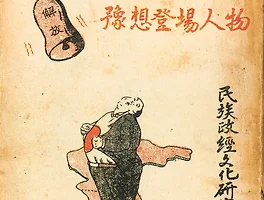 豫想登場人物
解放
民族政經文化研